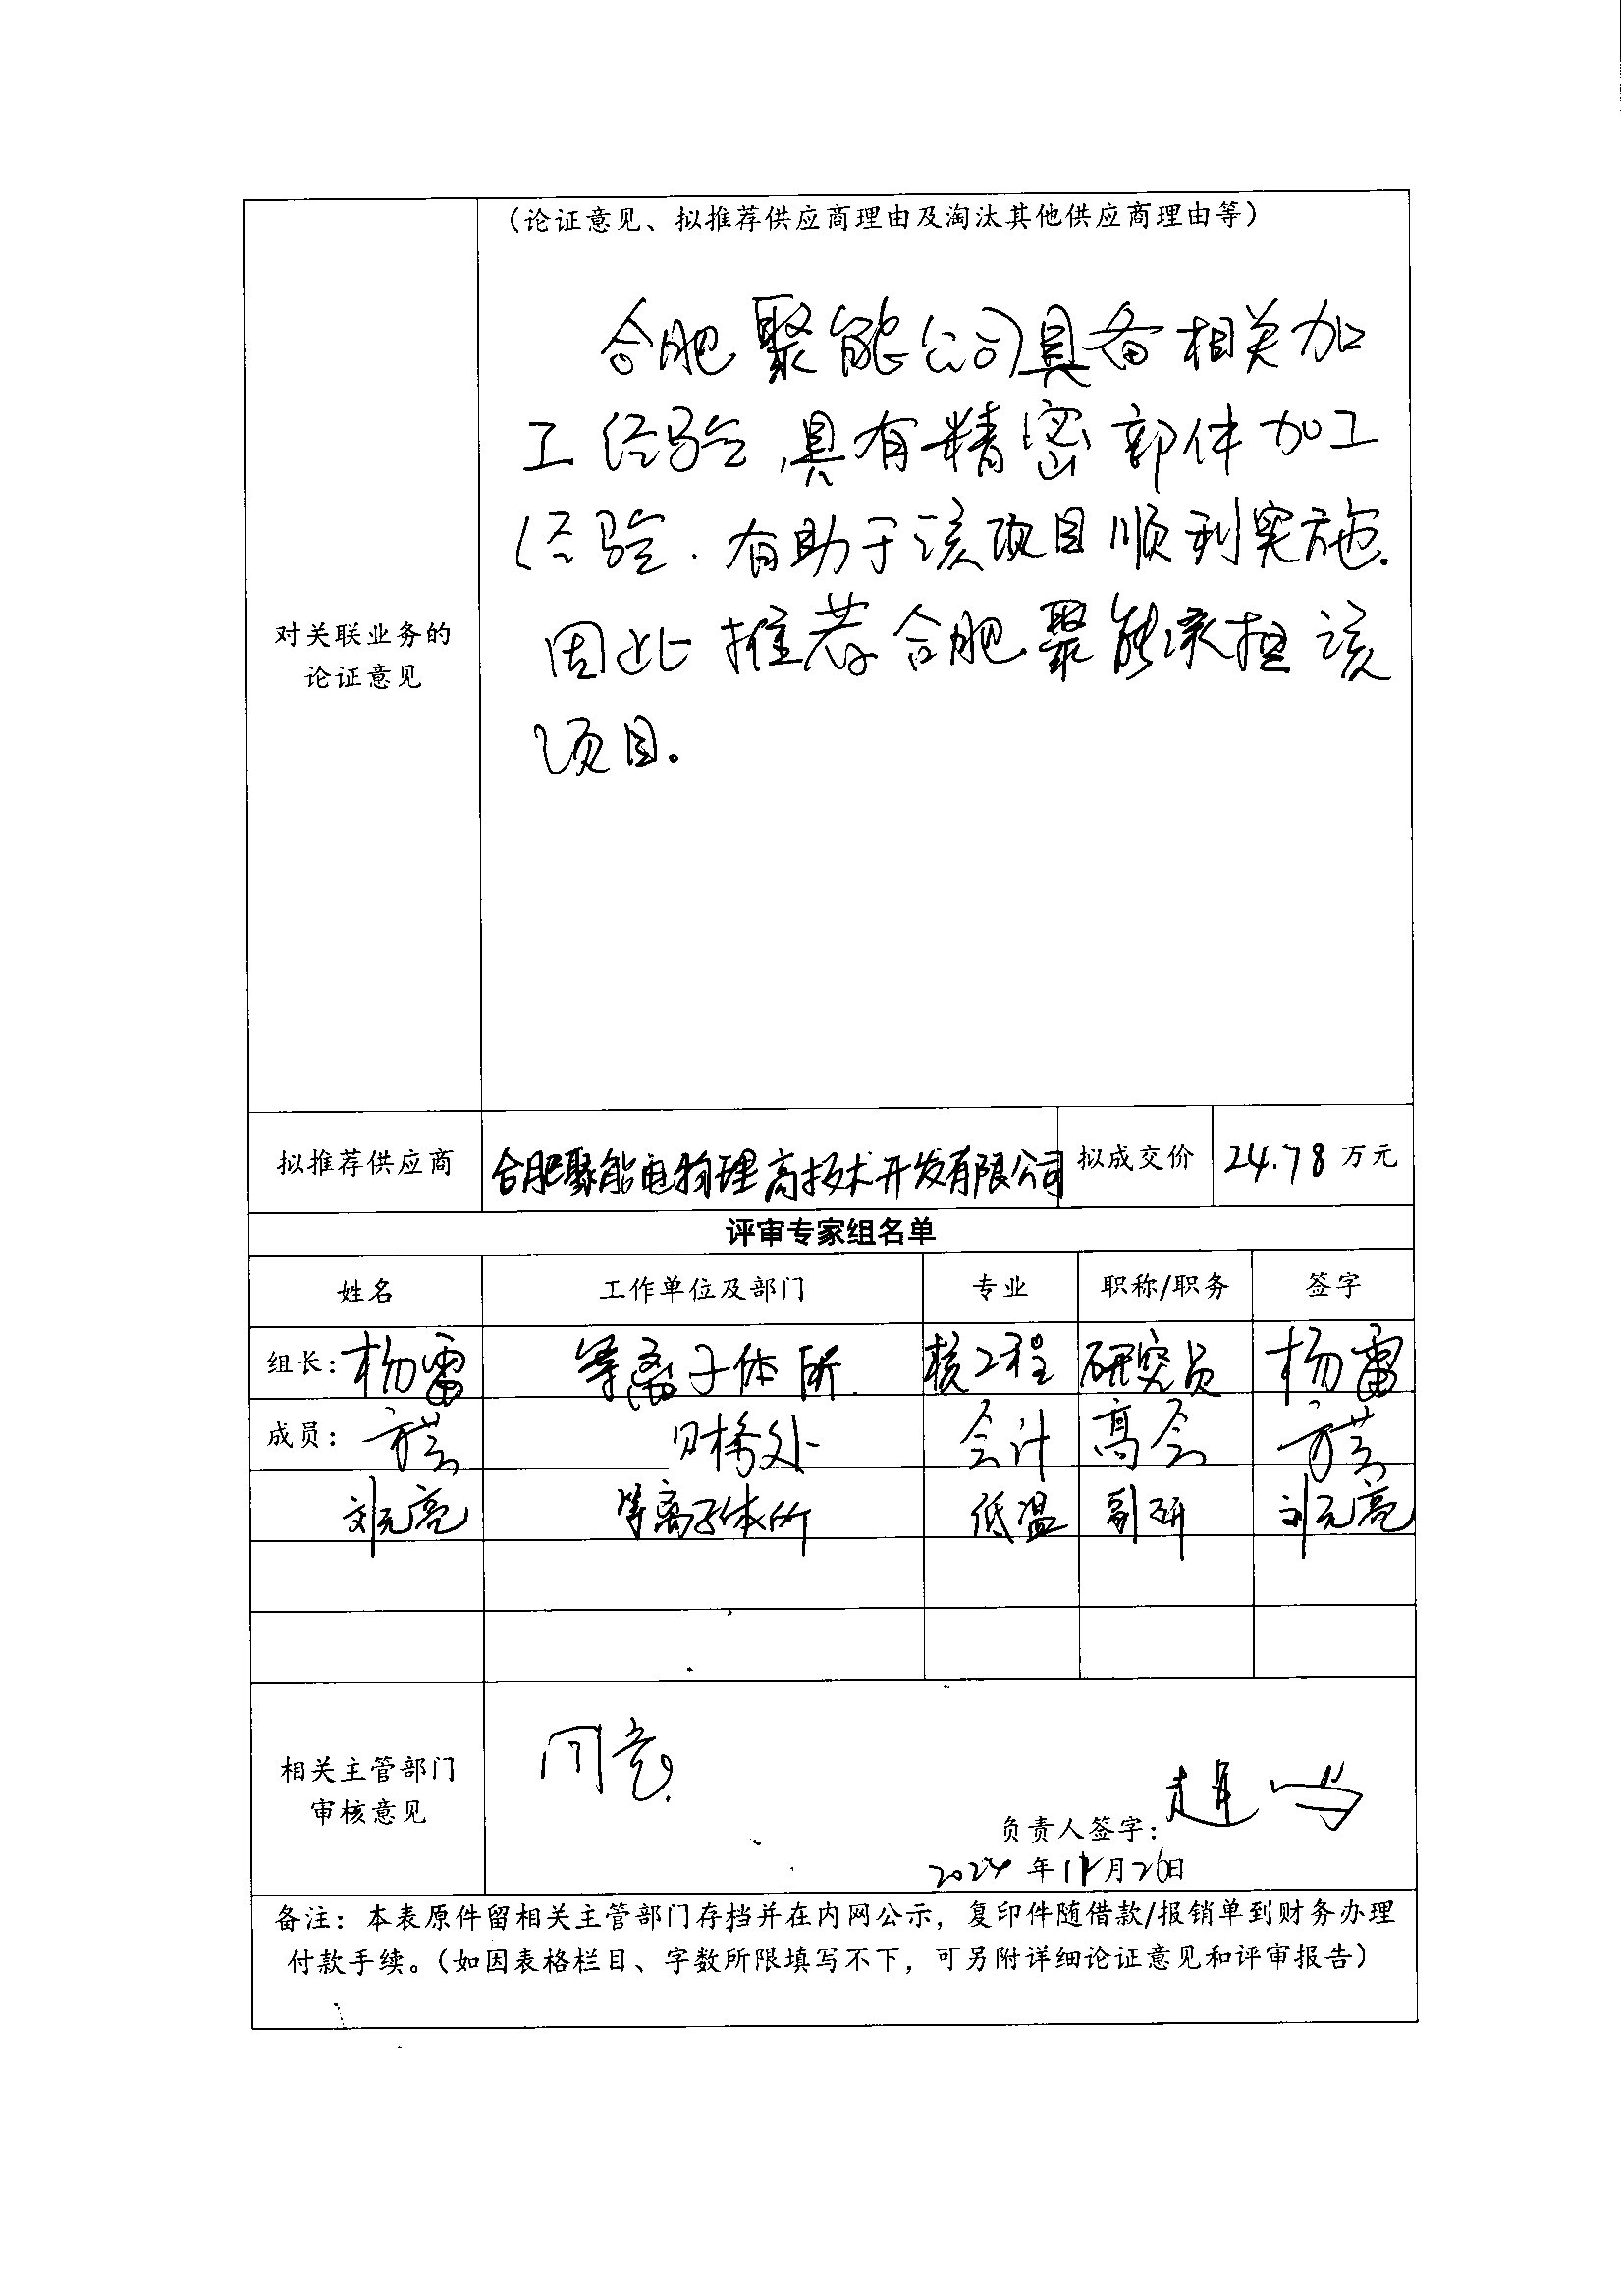 （论证意见、拟推荐供应商理由及淘汰其他供应商理由等）
合肥聚能公司具备相关加
工经验,具有精密部件加工
经验.有助于该项目顺利实施.
因此推荐合肥聚能承担该
项目。
对关联业务的
论证意见
拟推荐供应商 合肥聚能电物理高技术开发有限公司 拟成交价 24.78 万元
评审专家组名单
姓名 工作单位及部门 专业 职称/职务 签字
组长：杨雷 等离子体所 核工程 研究员 杨雷
成员： 财务处 会计 高会
刘元亮 等离子体所 低温 副研 刘元亮
相关主管部门
审核意见
同意.
负责人签字：
2024 年 月26日
备注：本表原件留相关主管部门存档并在内网公示，复印件随借款/报销单到财务办理
付款手续。（如因表格栏目、字数所限填写不下，可另附详细论证意见和评审报告）